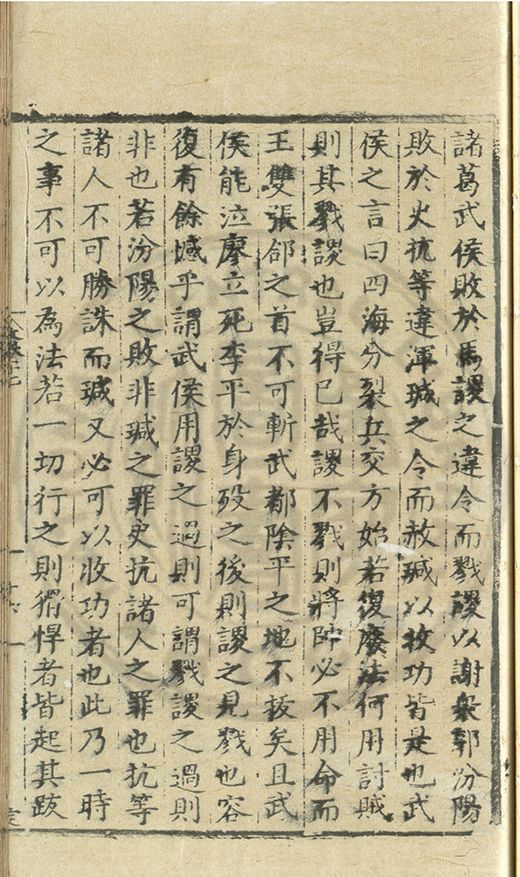 諸葛武侯敗於馬謖之違令而戮謖以謝衆郭汾陽
敗於史抗等違渾瑊之令而赦瑊以收功皆是也武
侯之言曰四海分裂兵交方始若復廢法何用討賊
則其戮謖也豈得已哉謖不戮則將帥必不用命而
王雙張郃之首不可斬武都陰平之地不拔矣且武
侯能泣廖立死李平於身歿之後則謖之見戮也容
復有餘憾乎謂武侯用謖之過則可謂戮謖之過則
非也若汾陽之敗非瑊之罪史抗諸人之罪也抗等
諸人不可勝誅而瑊又必可以收功者也此乃一時
之事不可以為法若一切行之則猾悍者皆起其跋